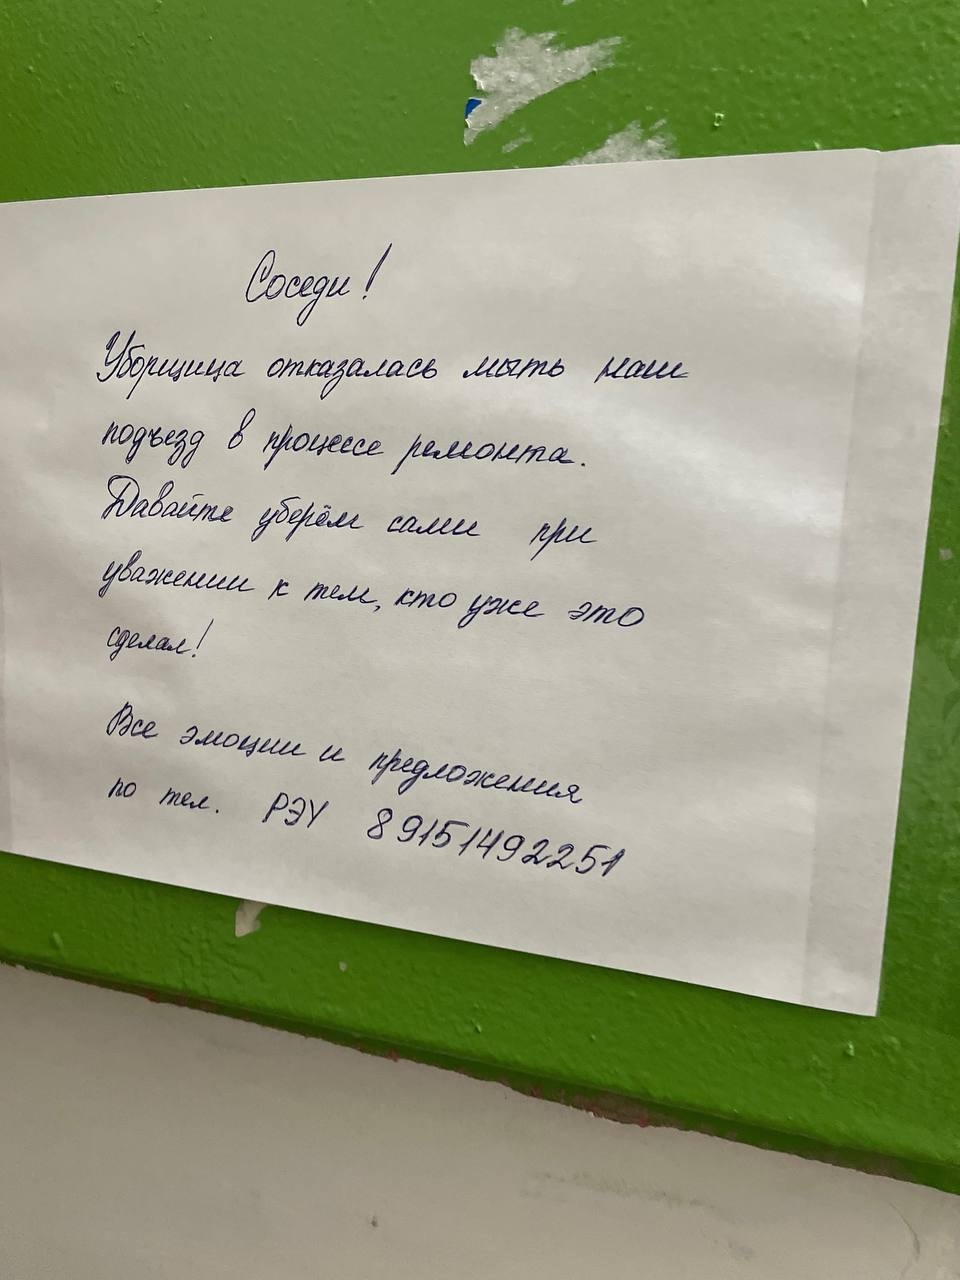 Соседи!
Уборщица отказалась мыть наш
подъезд в процессе ремонта.
Давайте уберём сами при
уважении к тем, кто уже это
сделал!
Все эмоции и предложения
по тел. РЭУ 89151492251